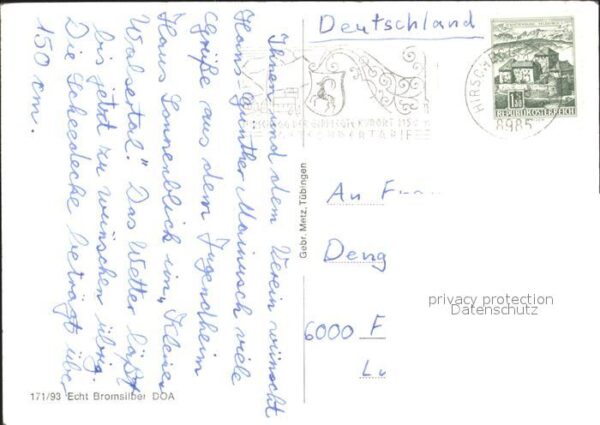 Deutschland
Ihnen und dem Verein wünscht
Hans Günther Mainusch viele
Grüße aus dem Jugendheim
Haus Sonnenblick im „Kleine
Walsertal." Das Wetter läßt
bis jetzt zu wünschen übrig.
Die Scheedecke beträgt über
150 cm.
REPUBLIK ÖSTERREICH
HIRSCH
8985
Gebr. Metz, Tübingen
An
Deng
6000 F
Lu
privacy protection
Datenschutz
171/93 Echt Bromsilber DOA